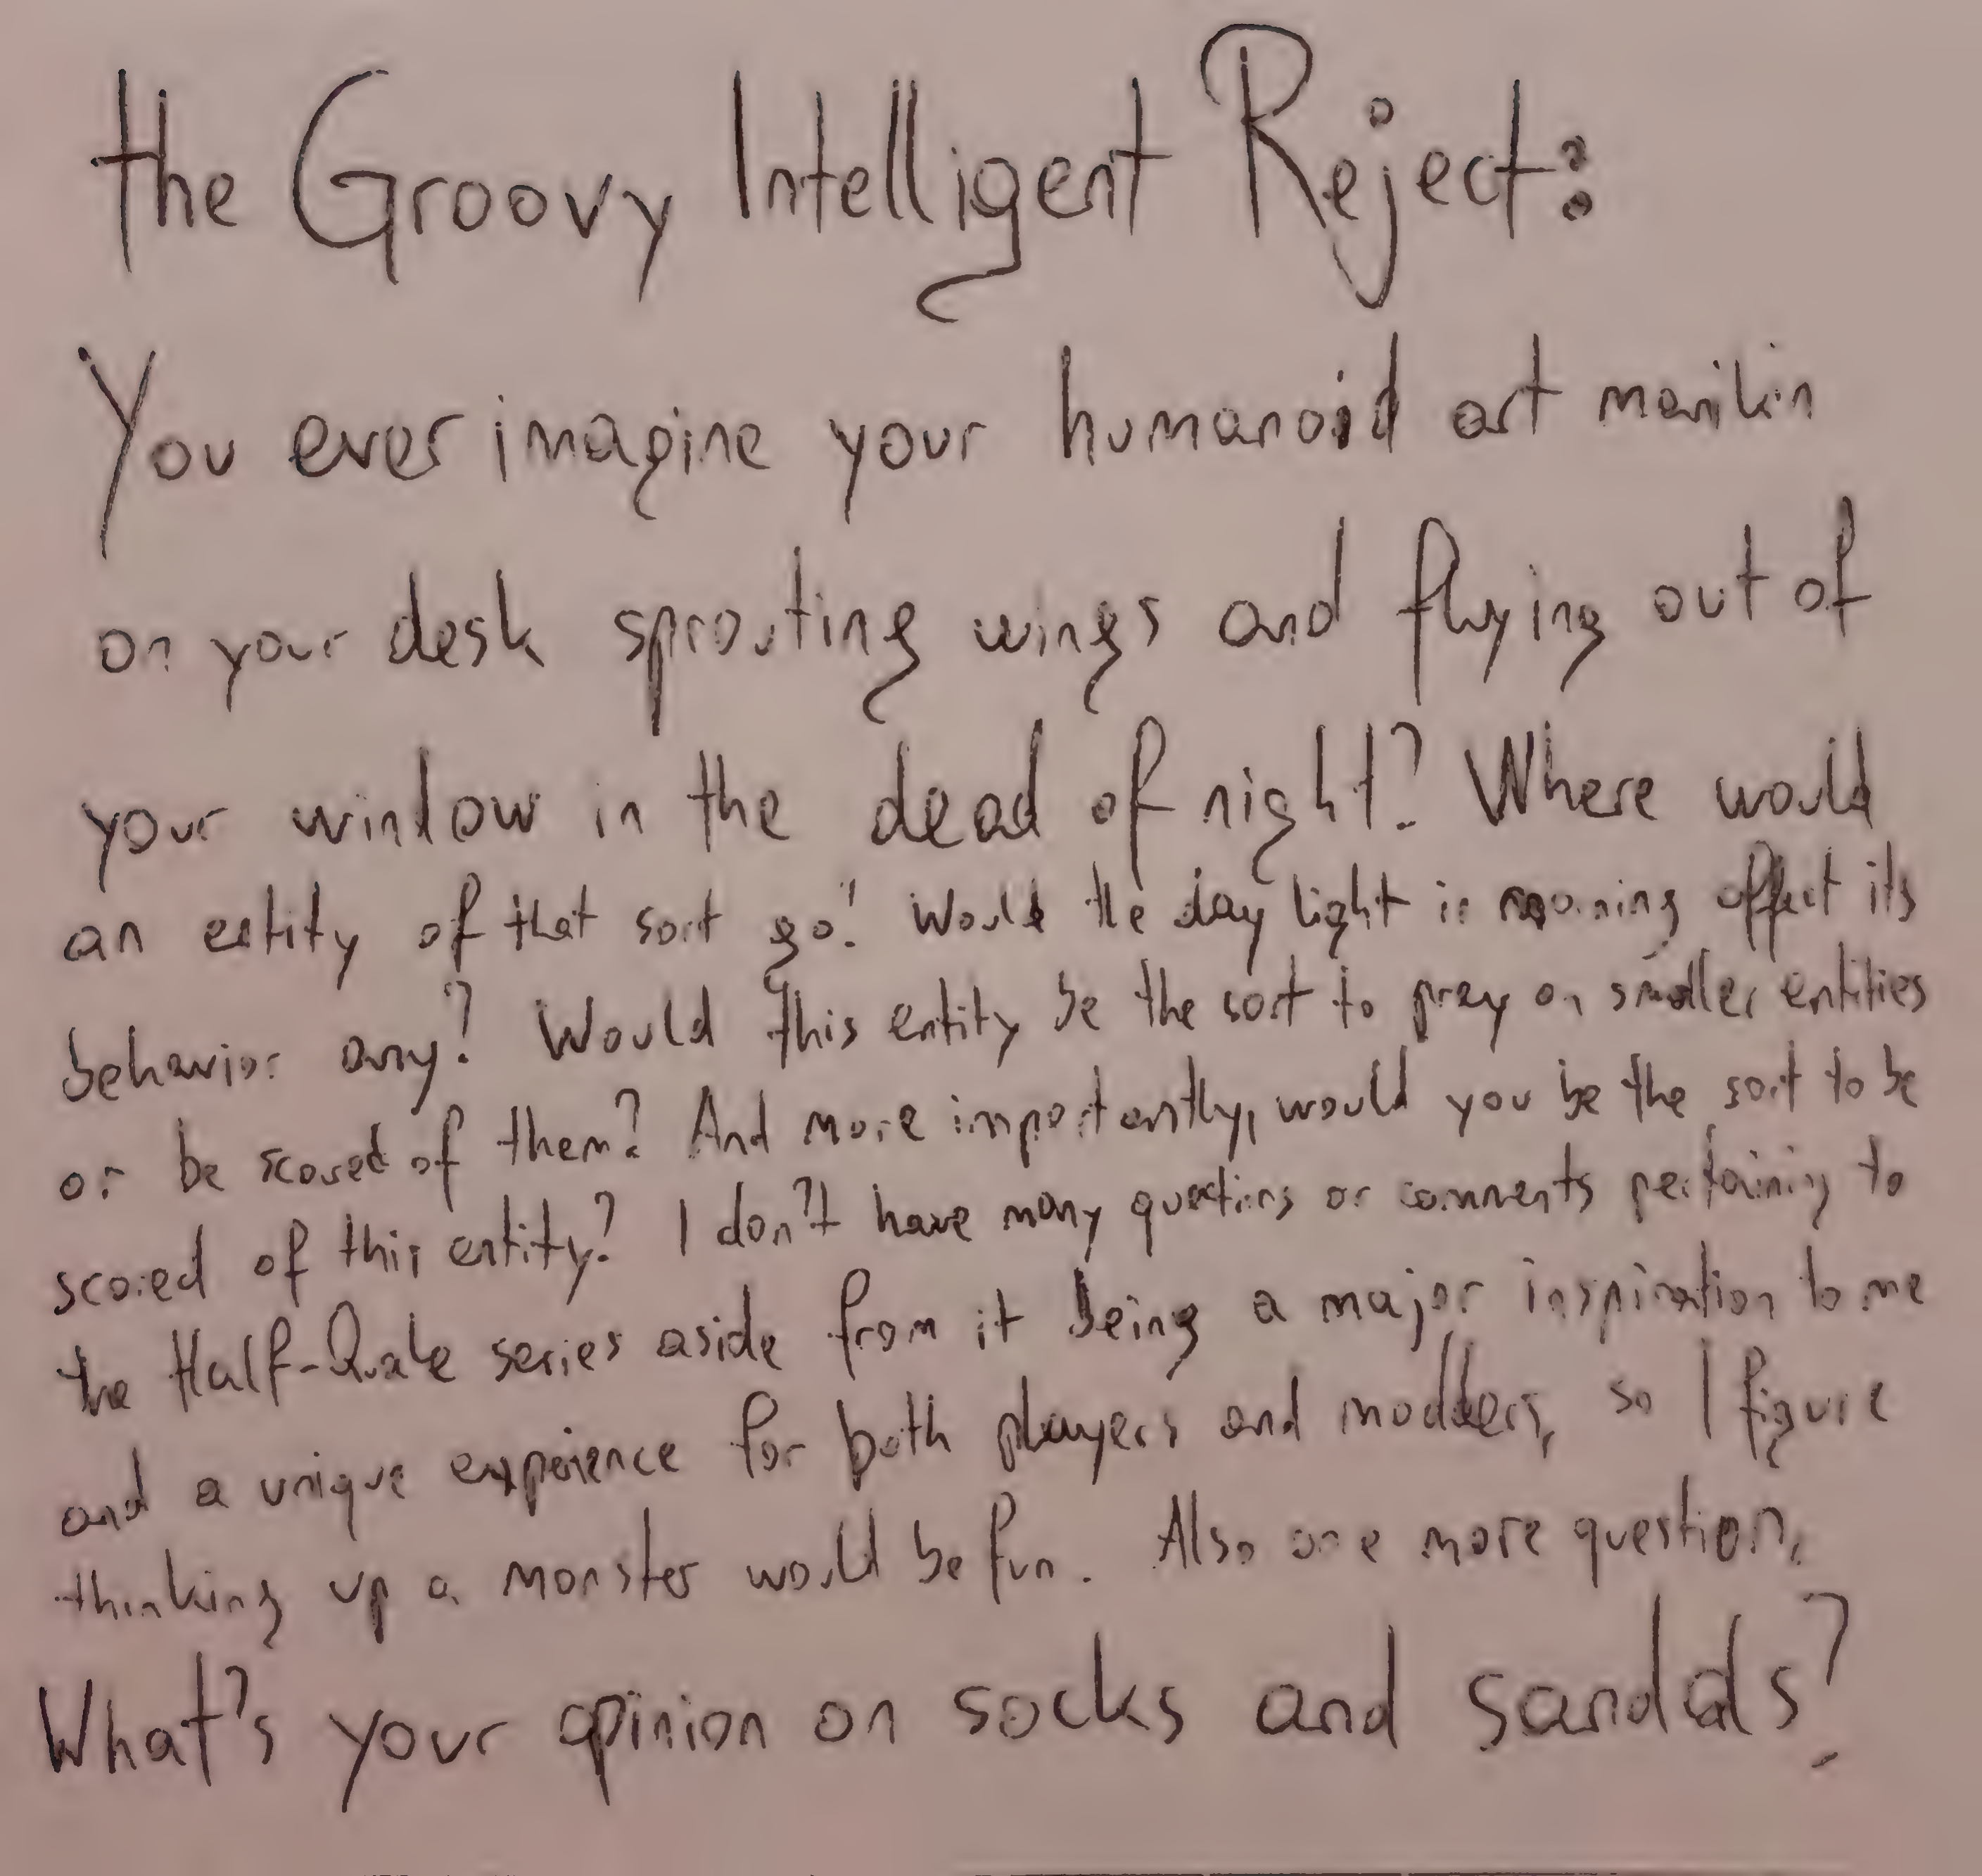 the Groovy Intelligent Reject:
You ever imagine your humanoid art manikin
on your desk sprouting wings and flying out of
your window in the dead of night? Where would
an entity of that sort go? Would the day light in morning affect its
behavior any? Would this entity be the sort to prey on smaller entities
or be scared of them? And more importantly, would you be the sort to be
scared of this entity? I don't have many questions or comments pertaining to
the Half-Quake series aside from it being a major inspiration to me
and a unique experience for both players and modders, so I figure
thinking up a monster would be fun. Also one more question,
What's your opinion on socks and sandals?